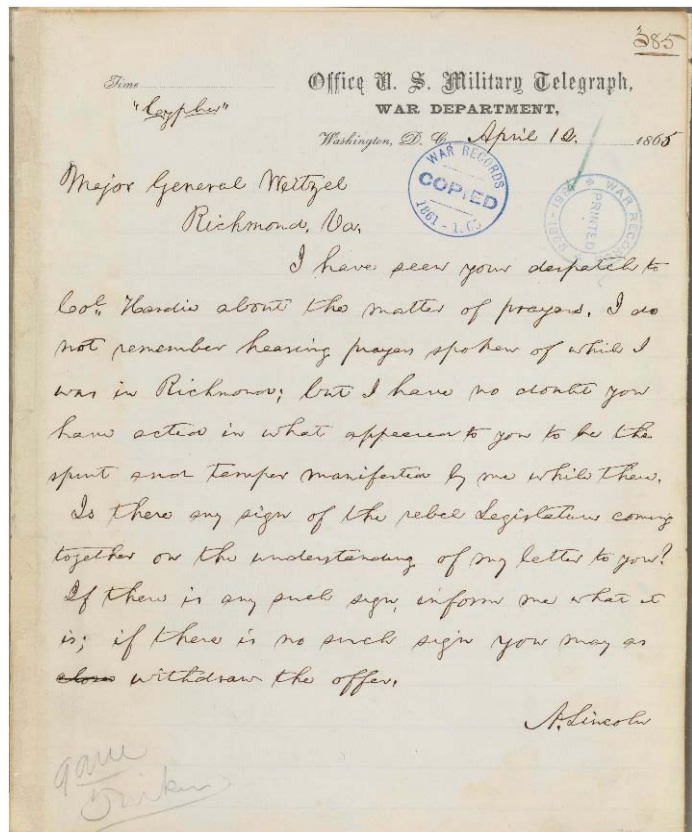 385
Office U. S. Military Telegraph,
Time
WAR DEPARTMENT,
"Cypher"
Washington, D. C. April 12. 1865
WAR RECORDS
COPIED
1861-1865
WAR RECORDS
PRINTED
Major General Weitzel
Richmond, Va.
I have seen your despatch to
Col. Hardie about the matter of prayers. I do
not remember hearing prayers spoken of while I
was in Richmond; but I have no doubt you
have acted in what appeared to you to be the
spirit and temper manifested by me while there.
Is there any sign of the rebel Legislature coming
together on the understanding of my letter to you?
If there is any such sign, inform me what it
is; if there is no such sign you may as
withdraw the offer.
A. Lincoln